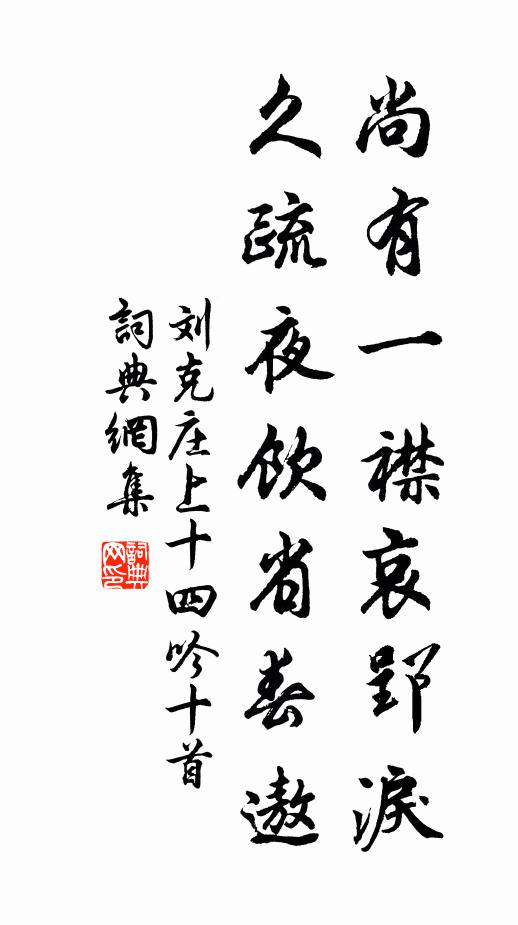 尚有一襟哀郢淚
久疏夜飲省春遨
刘克庄上十四吟十首
詞典網集
詞典网印